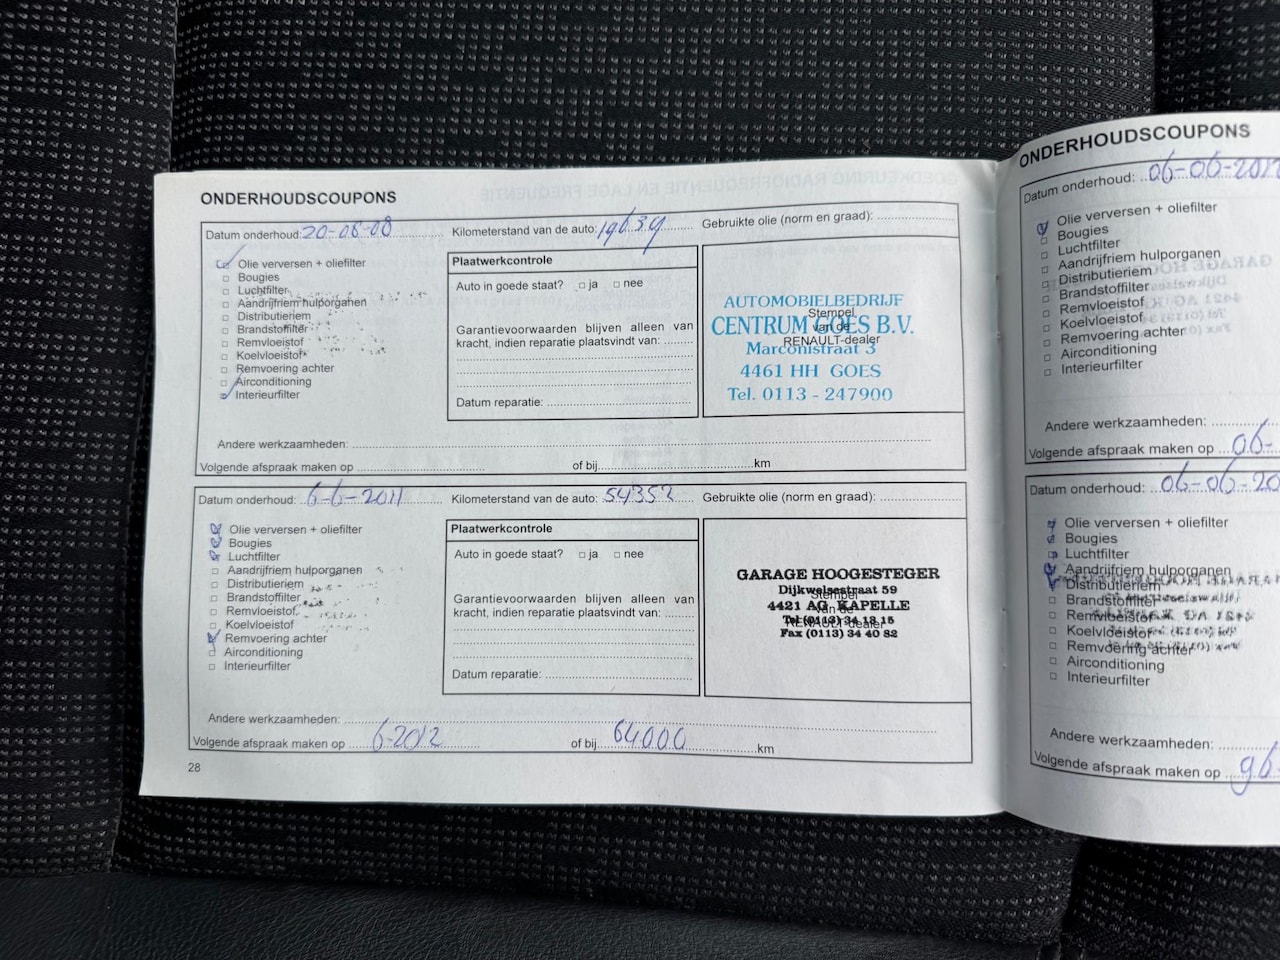 ONDERHOUDSCOUPONS
Datum onderhoud: 20-08-08 Kilometerstand van de auto: 19639 Gebruikte olie (norm en graad):
Olie verversen + oliefilter
Bougies
Luchtfilter
Aandrijfriem hulporganen
Distributieriem
Brandstoffilter
Remvloeistof
Koelvloeistof
Remvoering achter
Airconditioning
Interieurfilter
Plaatwerkcontrole
Auto in goede staat? ja nee
Garantievoorwaarden blijven alleen van
kracht, indien reparatie plaatsvindt van:
Datum reparatie:
Stempel
van de
RENAULT-dealer
AUTOMOBIELBEDRIJF
CENTRUM GOES B.V.
Marconistraat 3
4461 HH GOES
Tel. 0113 - 247900
Andere werkzaamheden:
Volgende afspraak maken op of bij km
Datum onderhoud: 6-6-2011 Kilometerstand van de auto: 54352 Gebruikte olie (norm en graad):
Olie verversen + oliefilter
Bougies
Luchtfilter
Aandrijfriem hulporganen
Distributieriem
Brandstoffilter
Remvloeistof
Koelvloeistof
Remvoering achter
Airconditioning
Interieurfilter
Plaatwerkcontrole
Auto in goede staat? ja nee
Garantievoorwaarden blijven alleen van
kracht, indien reparatie plaatsvindt van:
Datum reparatie:
Stempel
van de
RENAULT-dealer
GARAGE HOOGESTEGER
Dijkwelsestraat 59
4421 AG KAPELLE
Tel (0113) 34 13 15
Fax (0113) 34 40 82
Andere werkzaamheden:
Volgende afspraak maken op 6-2012 of bij 64000 km
28
ONDERHOUDSCOUPONS
Datum onderhoud: 06-06-201
Olie verversen + oliefilter
Bougies
Luchtfilter
Aandrijfriem hulporganen
Distributieriem
Brandstoffilter
Remvloeistof
Koelvloeistof
Remvoering achter
Airconditioning
Interieurfilter
Andere werkzaamheden:
Volgende afspraak maken op 06-
Datum onderhoud: 06-06-20
Olie verversen + oliefilter
Bougies
Luchtfilter
Aandrijfriem hulporganen
Distributieriem
Brandstoffilter
Remvloeistof
Koelvloeistof
Remvoering achter
Airconditioning
Interieurfilter
Andere werkzaamheden:
Volgende afspraak maken op